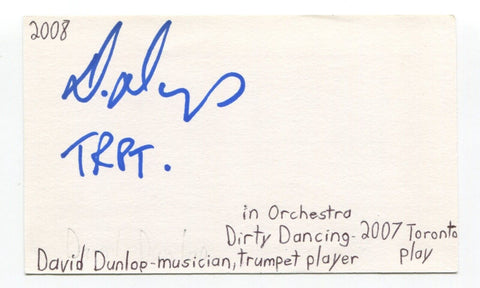 2008
D. Dunlop
TRPT.
in Orchestra
Dirty Dancing- 2007 Toronto
David Dunlop-musician, trumpet player play